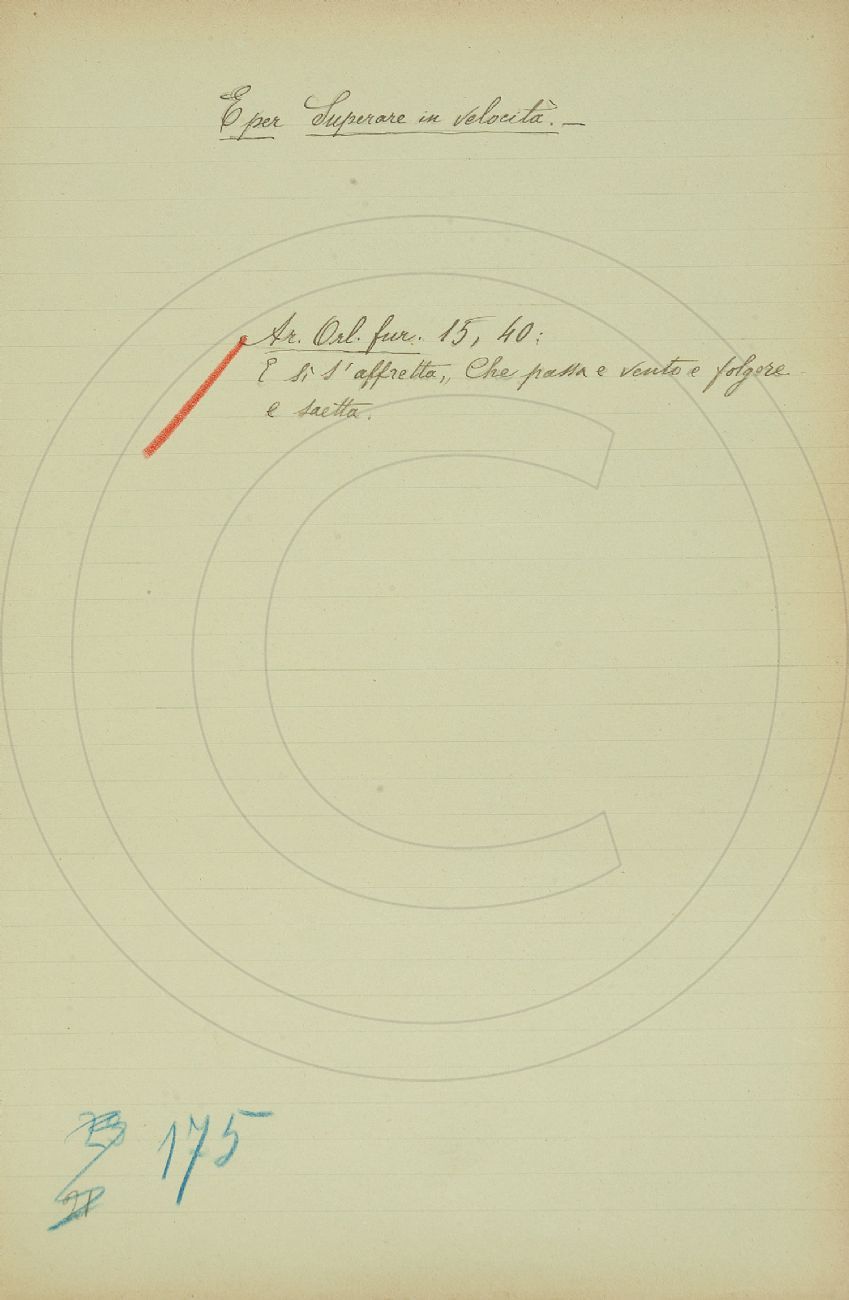 E per Superare in velocità. —
Ar. Orl. fur. 15, 40:
E sì s'affretta,, Che passa e vento e folgore
e saetta.
175